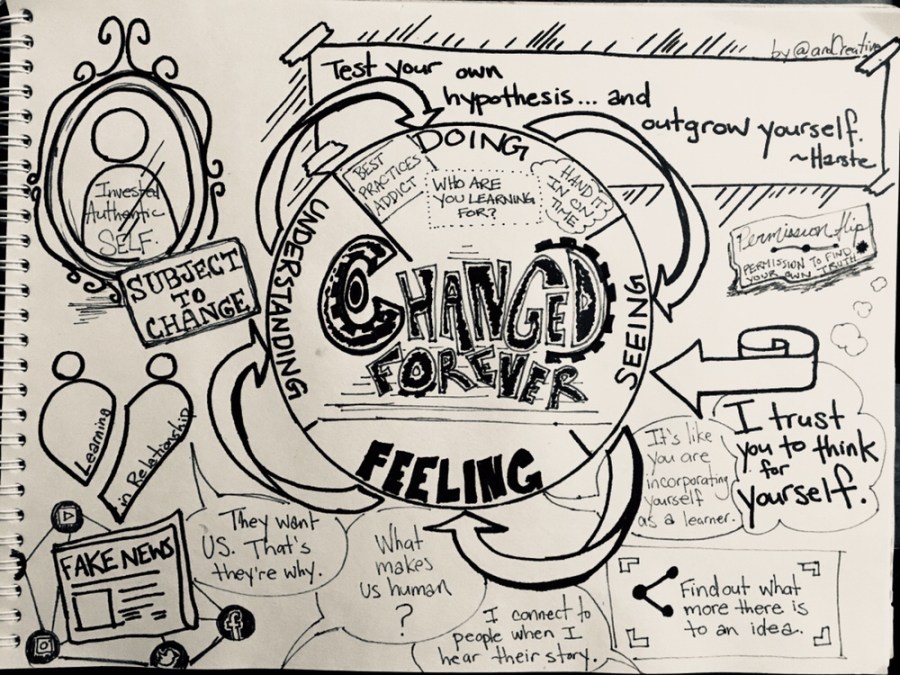 by @andCreative
Test your own
hypothesis... and
outgrow yourself.
~Harste
Invested
Authentic
SELF.
SUBJECT
TO
CHANGE
DOING
BEST
PRACTICES
ADDICT
WHO ARE
YOU LEARNING
FOR?
HAND IT
IN ON
TIME
UNDERSTANDING
CHANGED
FOREVER
SEEING
FEELING
Permission Slip
PERMISSION TO FIND
YOUR OWN TRUTH
Learning
in Relationship
It's like
you are
incorporating
yourself
as a learner.
I trust
you to think
for
yourself.
FAKE NEWS
They want
US. That's
they're why.
What
makes
us human
?
I connect to
people when I
hear their story.
Find out what
more there is
to an idea.